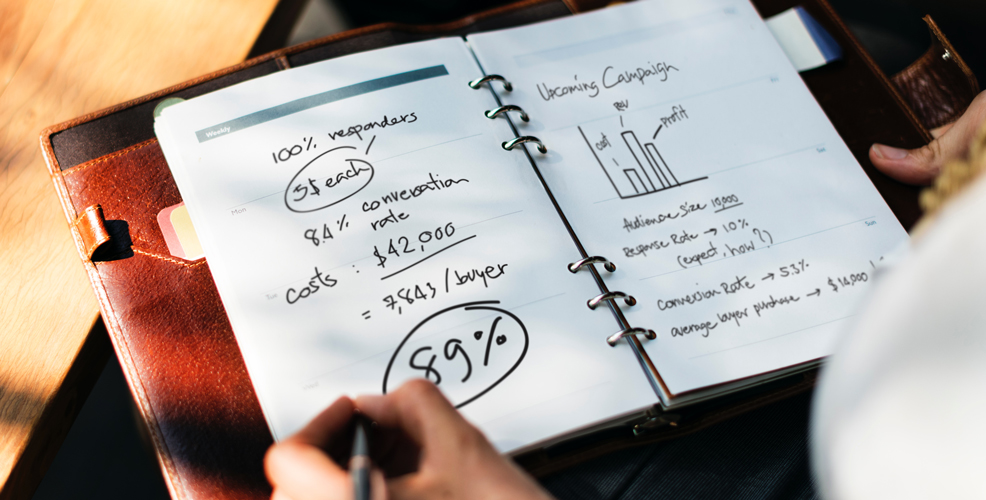 Weekly
100% responders
5$ each
Mon
8.4% conversation
rate
Tue
costs : $42,000
= 7,843 / buyer
89%
Upcoming Campaign
cost
Rev
Profit
Audience Size 10,000
Response Rate → 10%
(expect, how?)
Conversion Rate → 5.3%
average buyer purchase → $14,000